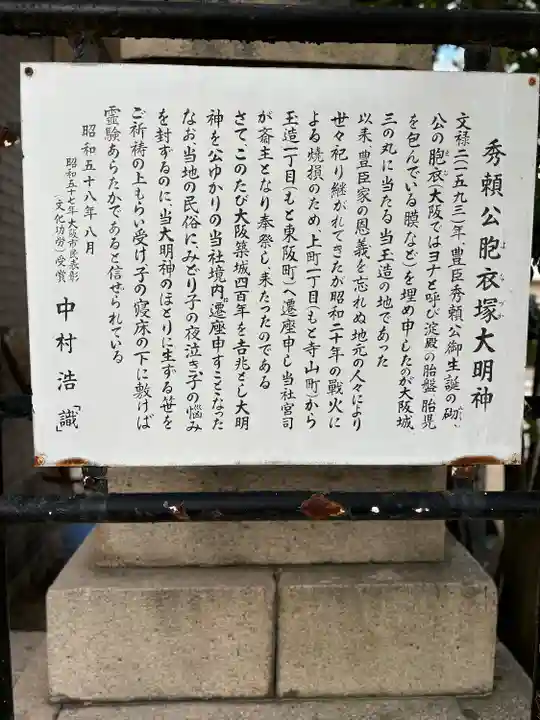 秀頼公胞衣塚大明神
よなづか
文禄二(一五九三)年、豊臣秀頼公御生誕の砌、
公の胞衣(大阪ではヨナと呼び淀殿の胎盤、胎児
を包んでいる膜など)を埋め申したのが大阪城、
三の丸に当たる当玉造の地であった
以来、豊臣家の恩義を忘れぬ地元の人々により
世々祀り継がれてきたが昭和二十年の戦火に
よる焼損のため、上町一丁目(もと寺山町)から
玉造一丁目(もと東阪町)へ遷座申し当社宮司
が斎主となり奉祭し、来たったのである
さてこのたび大阪築城四百年を吉兆とし大明
神を公ゆかりの当社境内に遷座申すことなった
なお当地の民俗にみどり子の夜泣き、子の悩み
を封ずるのに、当大明神のほとりに生ずる笹を
ご祈祷の上もらい受け子の寝床の下に敷けば
霊験あらたかであると信ぜられている
昭和五十八年八月
昭和五十七年大阪市民表彰
(文化功労)受賞
中村浩「識」